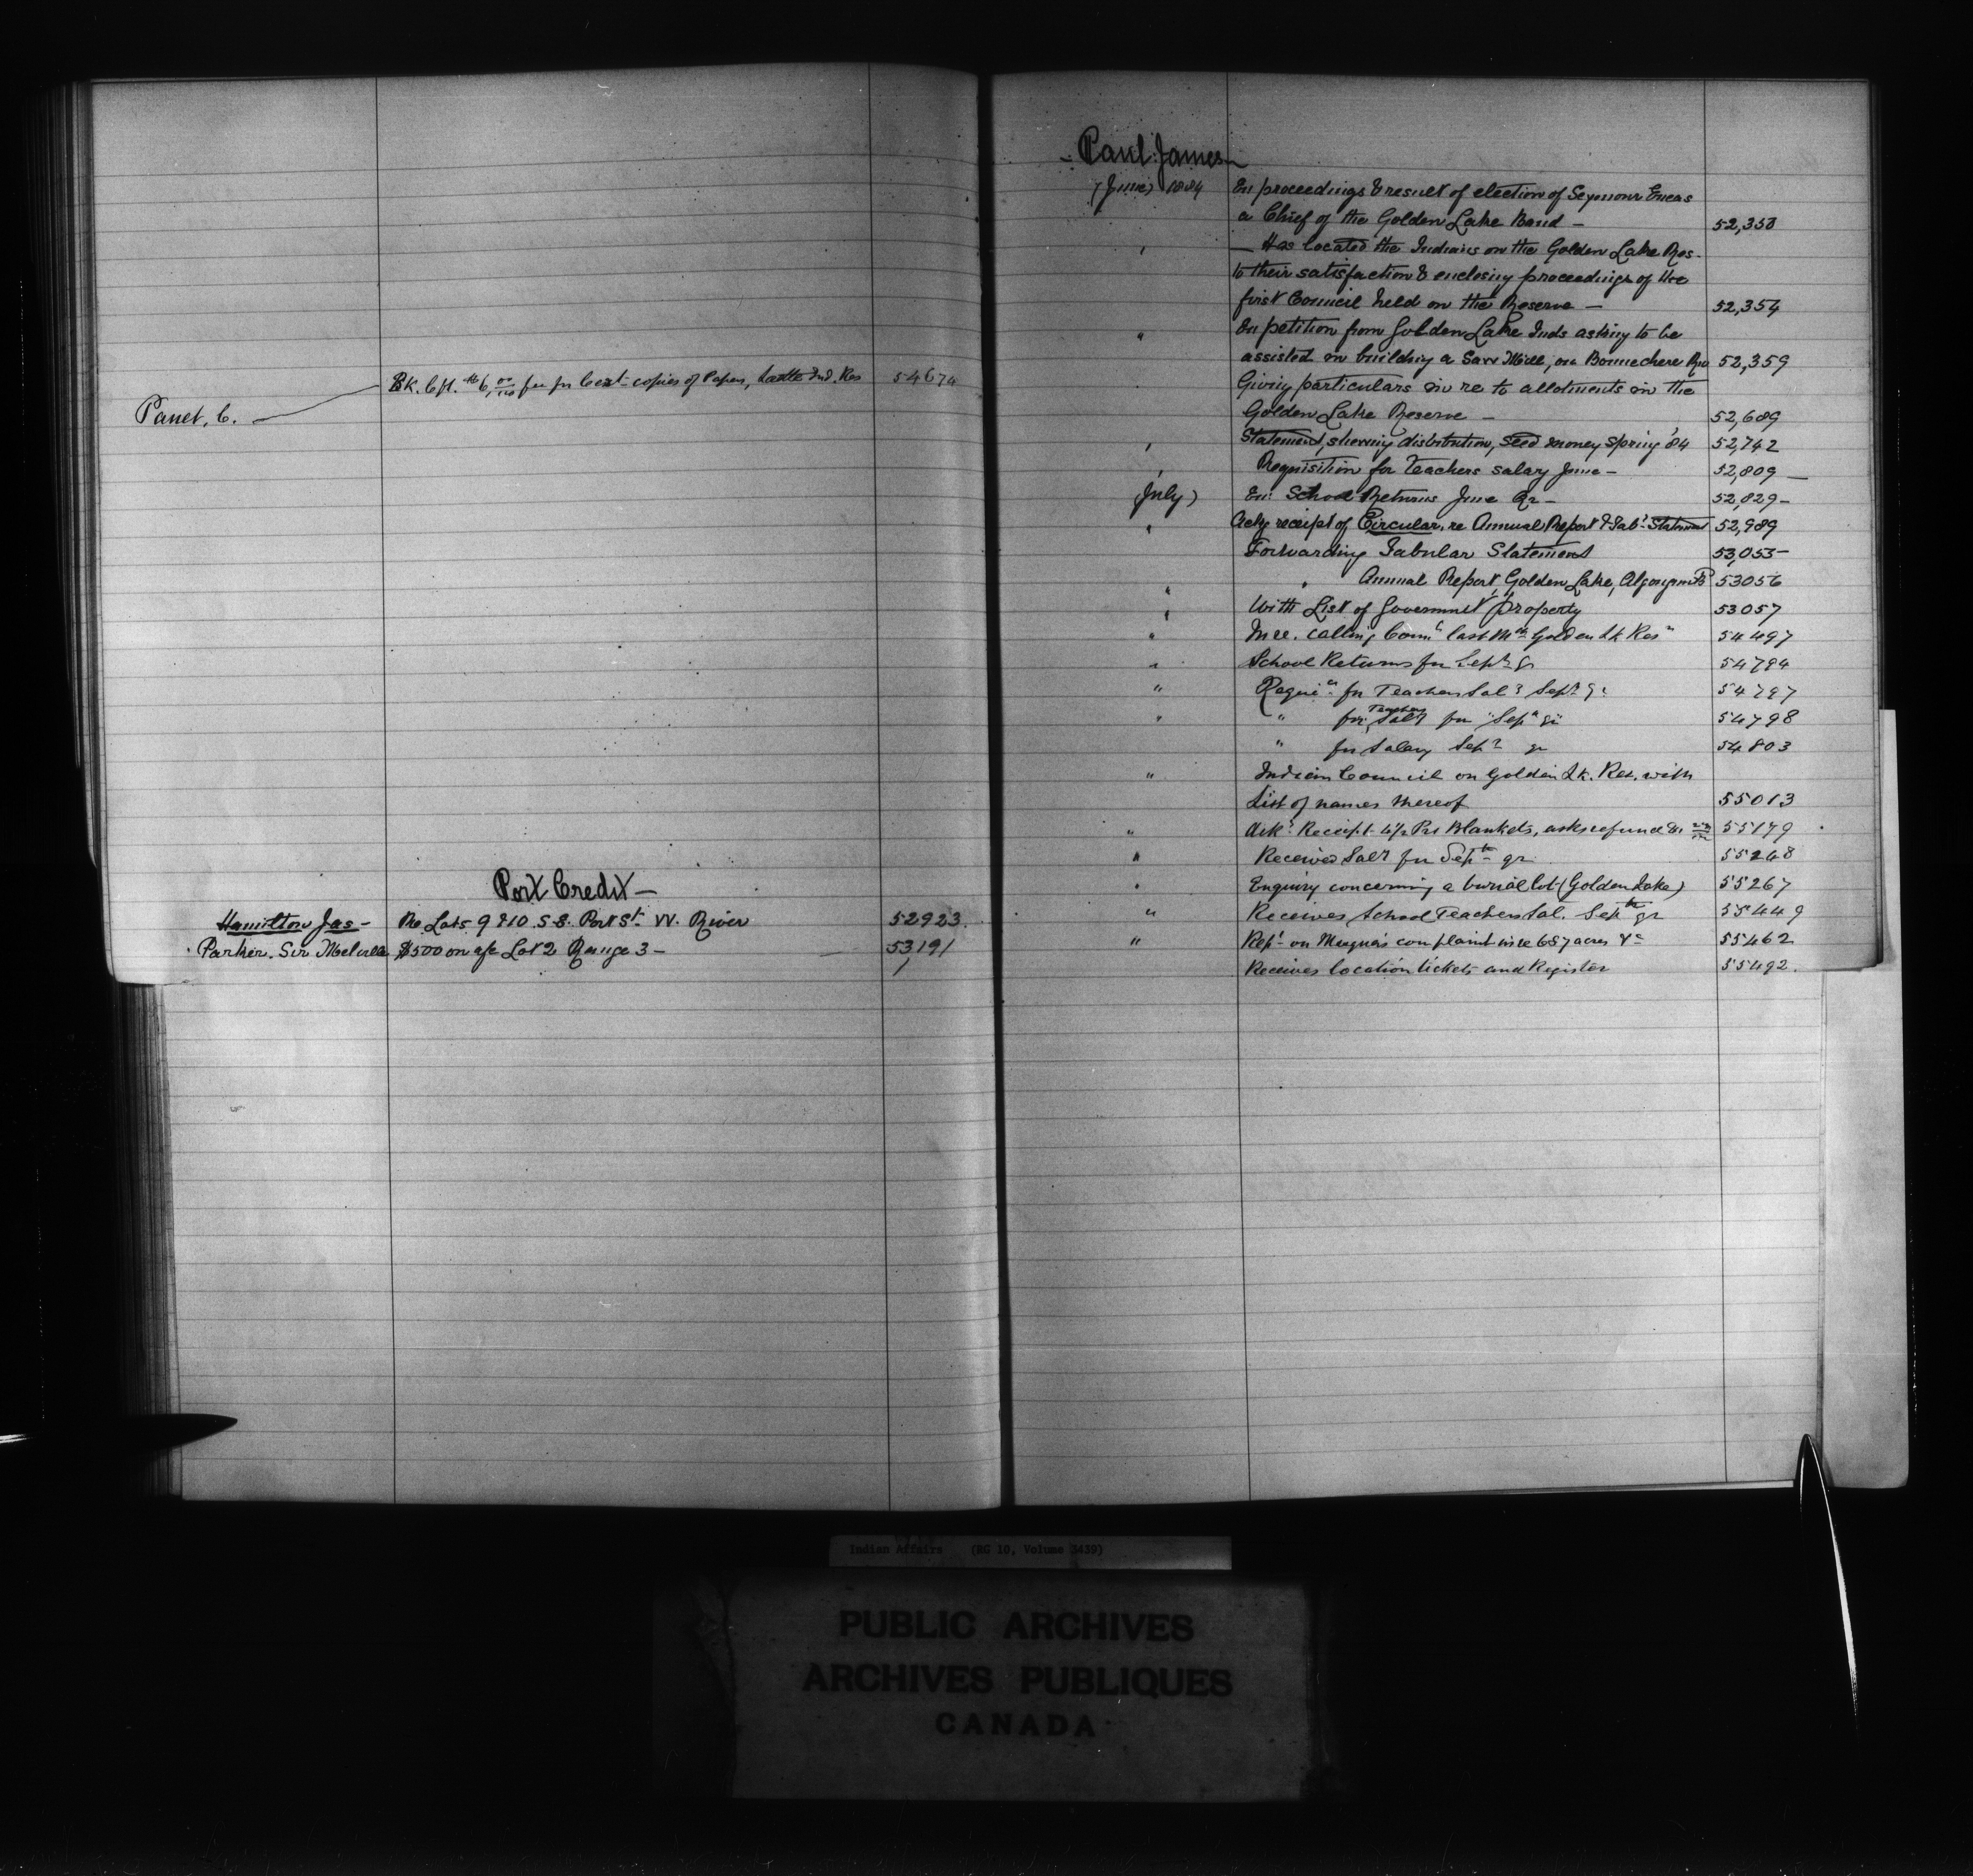 Panet, C.
Bk. Cft. $6 00/100 fee for Cert copies of Papers, Ind. Res 54674
Port Credit —
Hamilton Jas — Re Lots 9 & 10 S.E. Port St. W. River 52923.
Parker. Sir Melville $500 on a/c Lot 2 Range 3 — 53191
- Paul James -
(June) 1884 En proceedings & result of election of Seymour Eneas
a Chief of the Golden Lake Band — 52,353
" — Has located the Indians on the Golden Lake Res.
to their satisfaction & enclosing proceedings of the
first Council held on the Reserve — 52,354
" En petition from Golden Lake Inds asking to be
assisted in building a Saw Mill, on Bonnechere Riv 52,359
" Giving particulars in re to allotments in the
Golden Lake Reserve — 52,689
" Statement, showing distribution, Seed money Spring '84 52,742
" Requisition for Teachers salary June — 52,809 —
(July) En: School Returns June Qr — 52,829 —
" Ackg receipt of Circular, re Annual Report & Tabr Statement 52,989
Forwarding Tabular Statement 53,053 —
" " Annual Report, Golden Lake, Algonquin B 53056
" With List of Government property 53057
" In re. calling Counl last Mth Golden Lk Resn 54497
" School Returns for Septr Qr 54794
" Requin for Teachers Saly Septr Qr 54797
" " for Teachers Saly for "Sepr Qr" 54798
" for Salary Sepr qr 54803
" Indian Council on Golden Lk. Res. with
List of names thereof 55013
" Ackg Receipt 4½ Prs Blankets, asks refund 55179
" Received Saly for Septr qr 55248
" Enquiry concerning a burial lot (Golden Lake) 55267
" Receives School Teachers Sal. Septr qr 55449
" Rept on complaint in re 657 acres &c 55462
Receives location tickets and Register 55492.
Indian Affairs (RG 10, Volume 3439)
PUBLIC ARCHIVES
ARCHIVES PUBLIQUES
CANADA